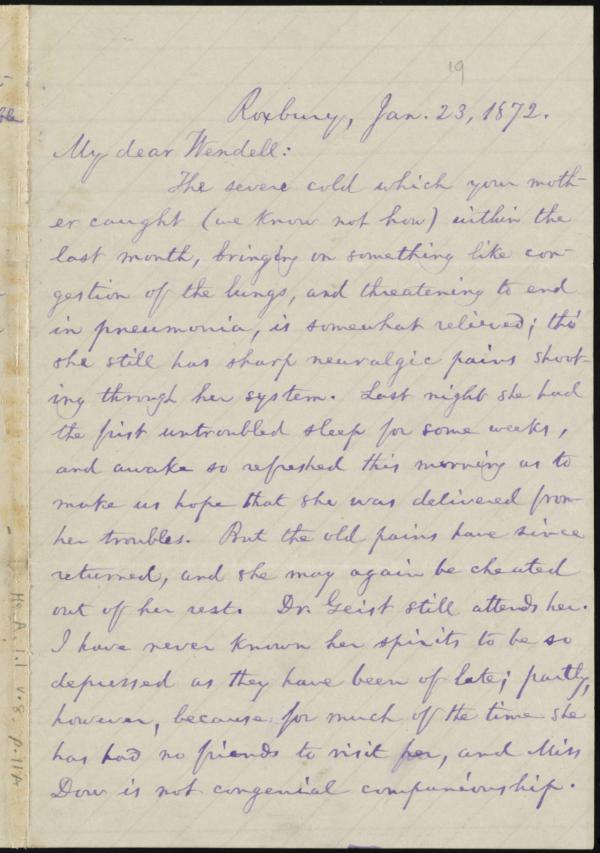 19
Roxbury, Jan. 23, 1872.
My dear Wendell:
The severe cold which your moth-
er caught (we know not how) within the
last month, bringing on something like con-
gestion of the lungs, and threatening to end
in pneumonia, is somewhat relieved; tho'
she still has sharp neuralgic pains shoot-
ing through her system. Last night she had
the first untroubled sleep for some weeks,
and awoke so refreshed this morning as to
make us hope that she was delivered from
her troubles. But the old pains have since
returned, and she may again be cheated
out of her rest. Dr. Geist still attends her.
I have never known her spirits to be so
depressed as they have been of late; partly,
however, because for much of the time she
has had no friends to visit her, and Miss
Dow is not congenial companionship.
v.8, p.11A